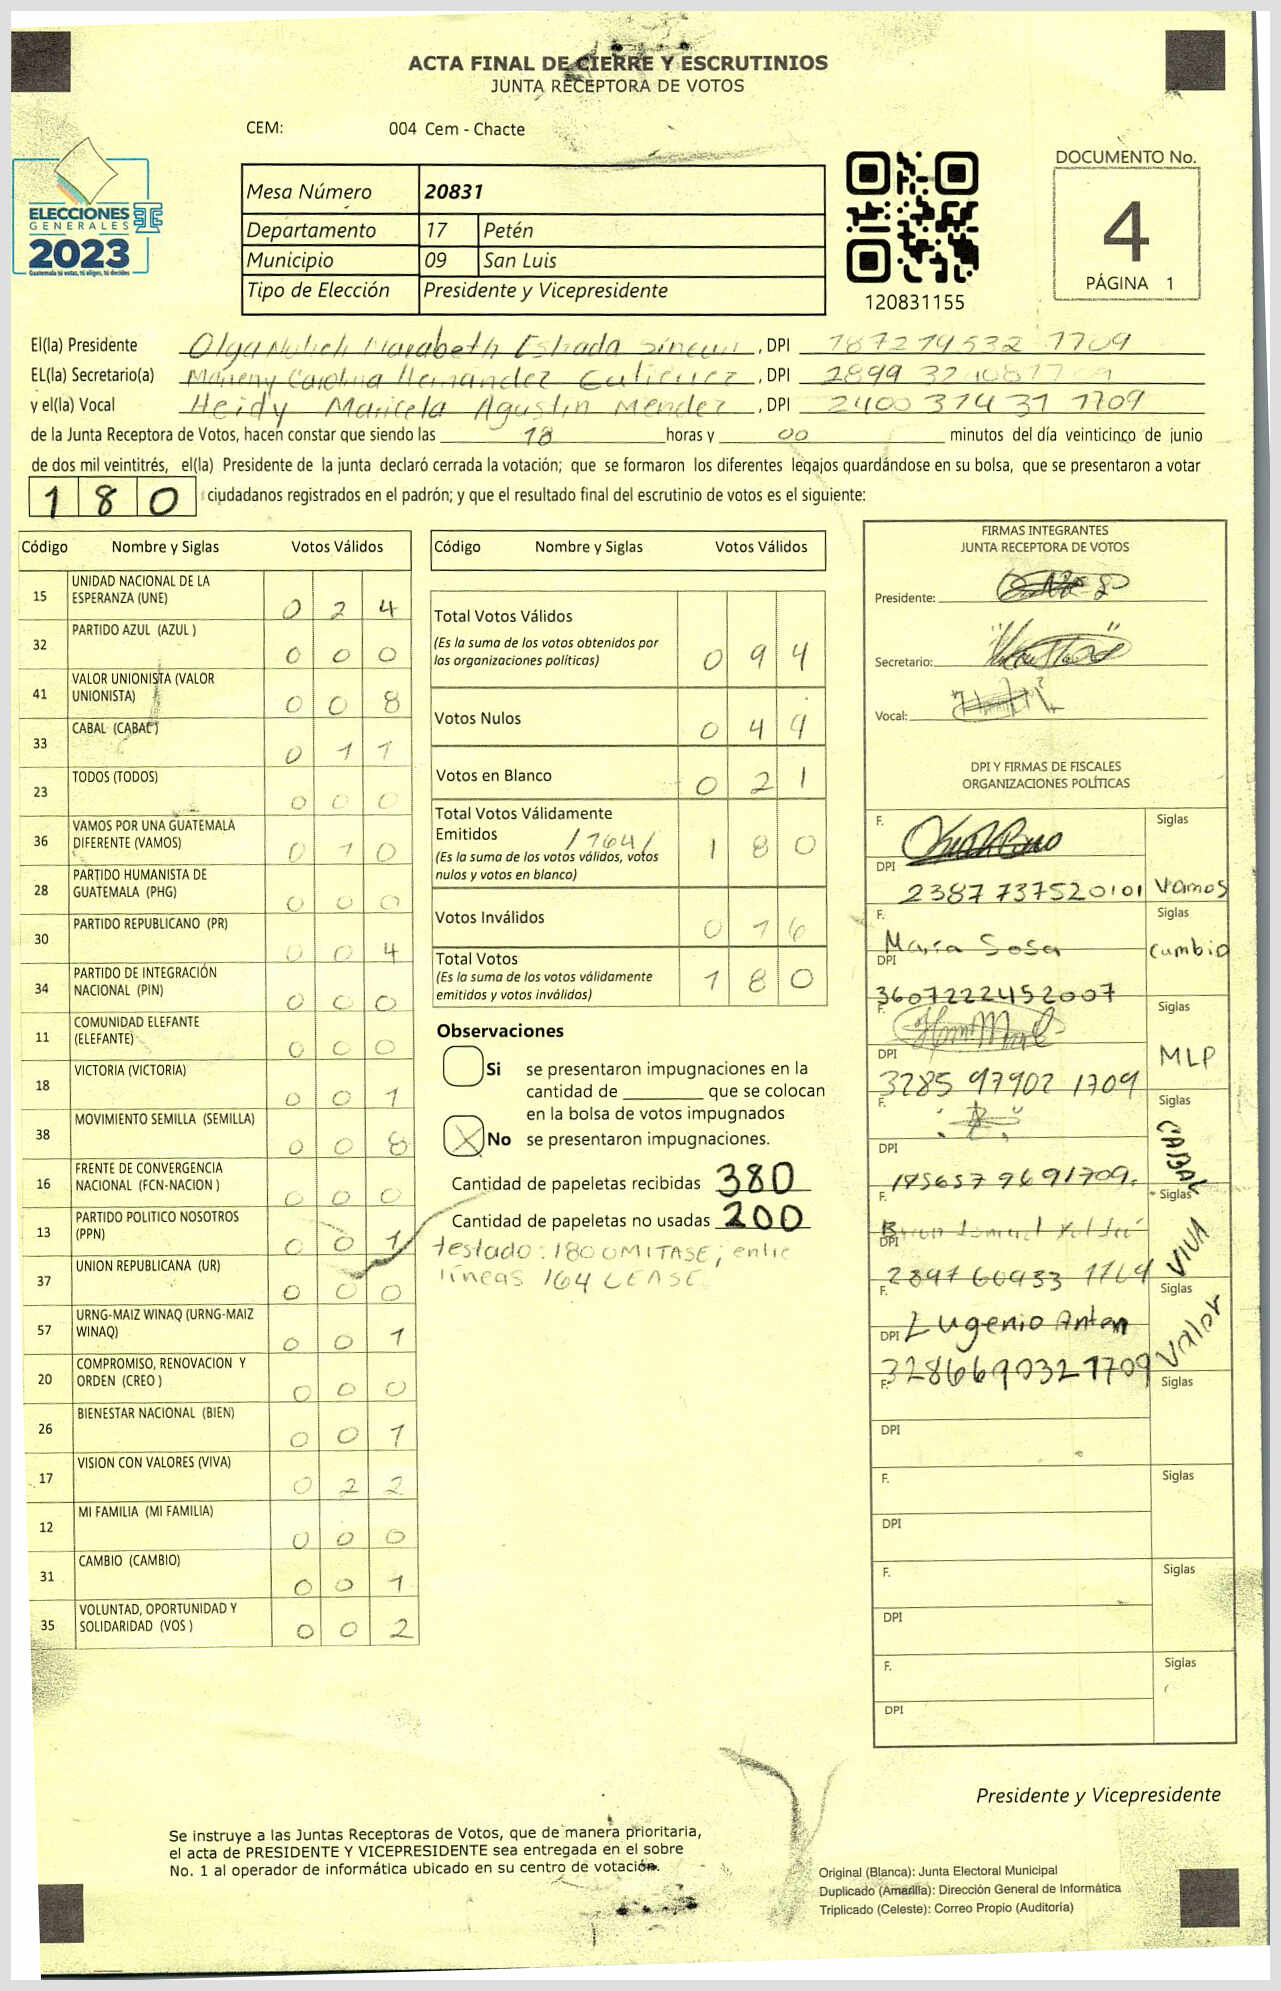 ACTA FINAL DE CIERRE Y ESCRUTINIOS
JUNTA RECEPTORA DE VOTOS
CEM: 004 Cem - Chacte
ELECCIONES
GENERALES
2023
Guatemala tú votas, tú eliges, tú decides
Mesa Número 20831
Departamento 17 Petén
Municipio 09 San Luis
Tipo de Elección Presidente y Vicepresidente
120831155
DOCUMENTO No.
4
PÁGINA 1
El(la) Presidente Olga Estrada , DPI 1709
EL(la) Secretario(a) Carolina Hernandez Gutierrez , DPI 2899
y el(la) Vocal Heidy Maricela Agustin Mendez , DPI 2400 31431 1709
de la Junta Receptora de Votos, hacen constar que siendo las 18 horas y 00 minutos del día veinticinco de junio
de dos mil veintitrés, el(la) Presidente de la junta declaró cerrada la votación; que se formaron los diferentes legajos guardándose en su bolsa, que se presentaron a votar
180 ciudadanos registrados en el padrón; y que el resultado final del escrutinio de votos es el siguiente:
Código Nombre y Siglas Votos Válidos
15 UNIDAD NACIONAL DE LA
ESPERANZA (UNE) 0 2 4
32 PARTIDO AZUL (AZUL ) 0 0 0
41 VALOR UNIONISTA (VALOR
UNIONISTA) 0 0 8
33 CABAL (CABAL ) 0 1 1
23 TODOS (TODOS) 0 0 0
36 VAMOS POR UNA GUATEMALA
DIFERENTE (VAMOS) 0 1 0
28 PARTIDO HUMANISTA DE
GUATEMALA (PHG) 0 0 0
30 PARTIDO REPUBLICANO (PR) 0 0 4
34 PARTIDO DE INTEGRACIÓN
NACIONAL (PIN) 0 0 0
11 COMUNIDAD ELEFANTE
(ELEFANTE) 0 0 0
18 VICTORIA (VICTORIA) 0 0 1
38 MOVIMIENTO SEMILLA (SEMILLA) 0 0 8
16 FRENTE DE CONVERGENCIA
NACIONAL (FCN-NACION ) 0 0 0
13 PARTIDO POLITICO NOSOTROS
(PPN) 0 0 1
37 UNION REPUBLICANA (UR) 0 0 0
57 URNG-MAIZ WINAQ (URNG-MAIZ
WINAQ) 0 0 1
20 COMPROMISO, RENOVACION Y
ORDEN (CREO ) 0 0 0
26 BIENESTAR NACIONAL (BIEN) 0 0 1
17 VISION CON VALORES (VIVA) 0 2 2
12 MI FAMILIA (MI FAMILIA) 0 0 0
31 CAMBIO (CAMBIO) 0 0 1
35 VOLUNTAD, OPORTUNIDAD Y
SOLIDARIDAD (VOS ) 0 0 2
Código Nombre y Siglas Votos Válidos
Total Votos Válidos
(Es la suma de los votos obtenidos por
las organizaciones políticas) 0 9 4
Votos Nulos 0 4 9
Votos en Blanco 0 2 1
Total Votos Válidamente
Emitidos /164/ 1 8 0
(Es la suma de los votos válidos, votos
nulos y votos en blanco)
Votos Inválidos 0 1 6
Total Votos
(Es la suma de los votos válidamente
emitidos y votos inválidos) 1 8 0
Observaciones
Si se presentaron impugnaciones en la
cantidad de ________ que se colocan
en la bolsa de votos impugnados
X No se presentaron impugnaciones.
Cantidad de papeletas recibidas 380
Cantidad de papeletas no usadas 200
testado: 180 OMITASE; entre
líneas 164 LEASE.
FIRMAS INTEGRANTES
JUNTA RECEPTORA DE VOTOS
Presidente:
Secretario:
Vocal:
DPI Y FIRMAS DE FISCALES
ORGANIZACIONES POLÍTICAS
F. Siglas
DPI 2387 737520101 Vamos
F. Maria Sosa Siglas
DPI 3607222452007 Cambio
F. Siglas
DPI 3285 97902 1709 MLP
F. Siglas
DPI CABAL
F. Siglas
DPI VIVA
F. Eugenio Anton Siglas
DPI 3286690321709 Valor
F. Siglas
DPI
F. Siglas
DPI
F. Siglas
DPI
F. Siglas
DPI
Presidente y Vicepresidente
Se instruye a las Juntas Receptoras de Votos, que de manera prioritaria,
el acta de PRESIDENTE Y VICEPRESIDENTE sea entregada en el sobre
No. 1 al operador de informática ubicado en su centro de votación.
Original (Blanca): Junta Electoral Municipal
Duplicado (Amarilla): Dirección General de Informática
Triplicado (Celeste): Correo Propio (Auditoría)